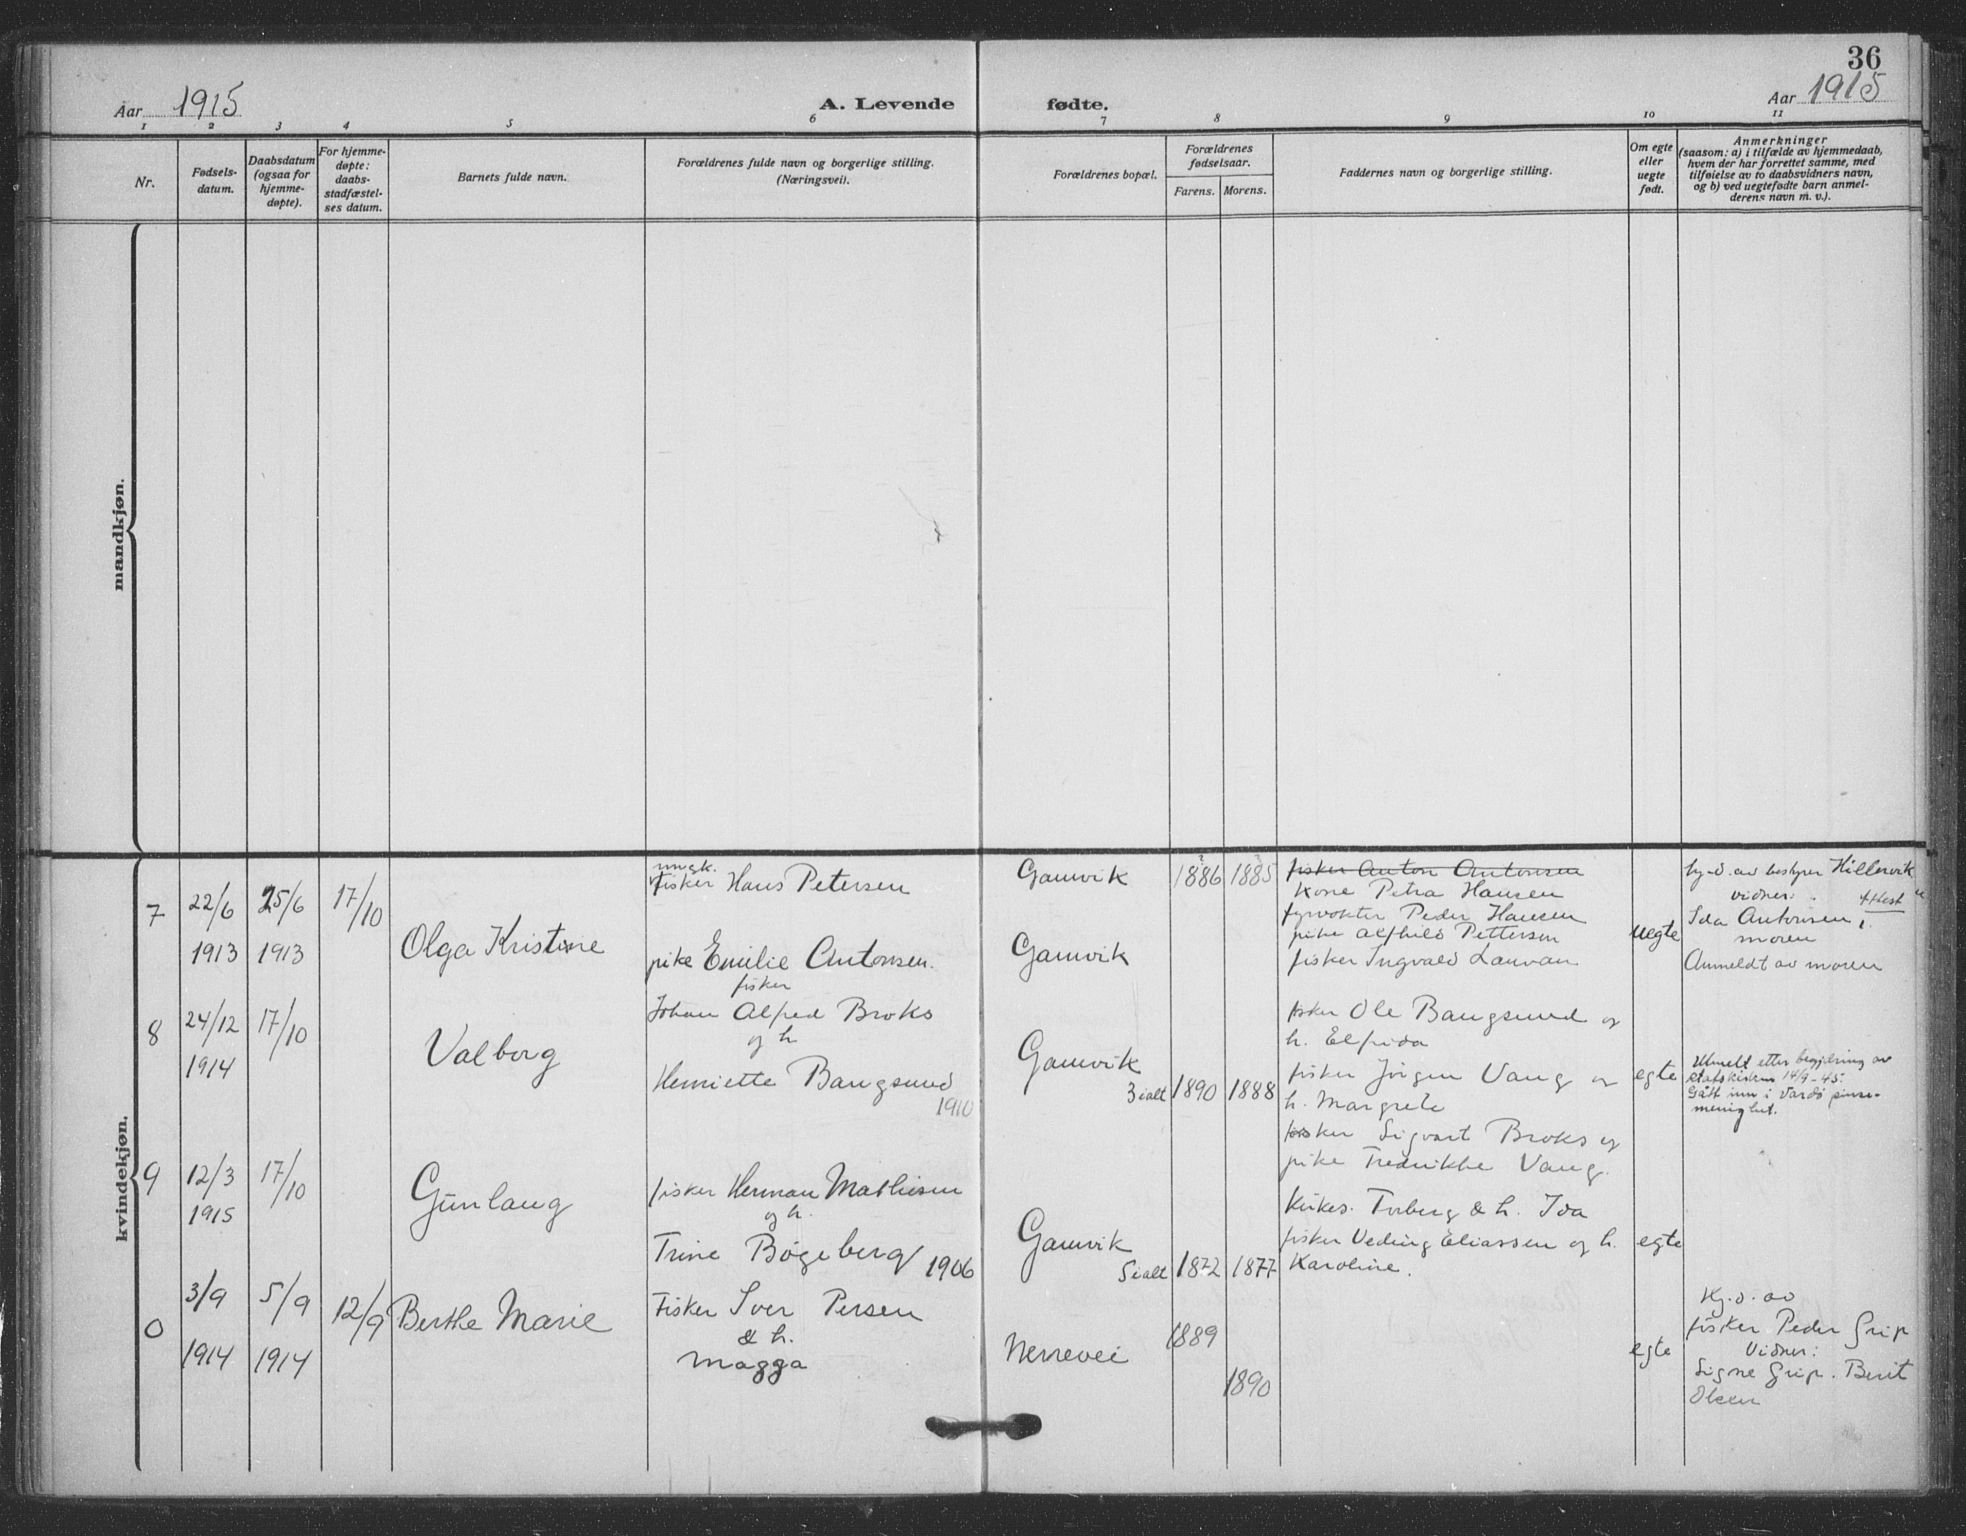 36
Aar 1915 A. Levende fødte. Aar 1915
1 2 3 4 5 6 7 8 9 10 11
Nr.
Fødsels-
datum.
Daabsdatum
(ogsaa for
hjemme-
døpte).
For hjemme-
døpte:
daabs-
stadfæstel-
ses datum.
Barnets fulde navn.
Forældrenes fulde navn og borgerlige stilling.
(Næringsvei).
Forældrenes bopæl.
Forældrenes
fødselsaar.
Farens. Morens.
Faddernes navn og borgerlige stilling.
Om egte
eller
uegte
født.
Anmerkninger
(saasom: a) i tilfælde av hjemmedaab,
hvem der har forrettet samme, med
tilføielse av to daabsvidners navn,
og b) ved uegtefødte barn anmel-
derens navn m. v.).
mandkjøn.
kvindekjøn.
7
22/6
1913
25/6
1913
17/10
Olga Kristine
ungk.
fisker Hans Petersen
pike Emilie Antonsen.
Gamvik
Gamvik
1886 1885
fisker Anton Antonsen
Kone Petra Hansen
fyrvokter Peder Hansen
pike Alfhild Pettersen
fisker Ingvald Lauvan
uegte
hj-d. av bestyrer Hillervik
vidner:
Attest
Ida Antonsen
moren
Anmeldt av moren
8
24/12
1914
17/10
Valborg
fisker
Johan Alfred Broks
og h.
Henriette Bangsund
1910
Gamvik
3 ialt
1890 1888
fisker Ole Bangsund og
h. Elfrida
fisker Jørgen Vang og
h. Margrete
fisker Sigvart Broks og
pike Fredrikke Vang.
egte
Utmeldt etter begjæring av
statskirken 14/9-45.
Gått inn i Vardø pinse-
menighet.
9
12/3
1915
17/10
Gunlaug
fisker Herman Mathisen
og h.
Trine Bøgeberg 1906
Gamvik
5 ialt
1872 1877
Kirkes. Torberg & h. Ida
fisker Veding Eliassen og h.
Karoline.
egte
0
3/9
1914
5/9
1914
12/9
Berthe Marie
Fisker Iver Persen
& h.
Magga
Nervei
1889
1890
egte
Hj. d. av
fisker Peder Grip
Vidner:
Signe Grip. Berit
Olsen